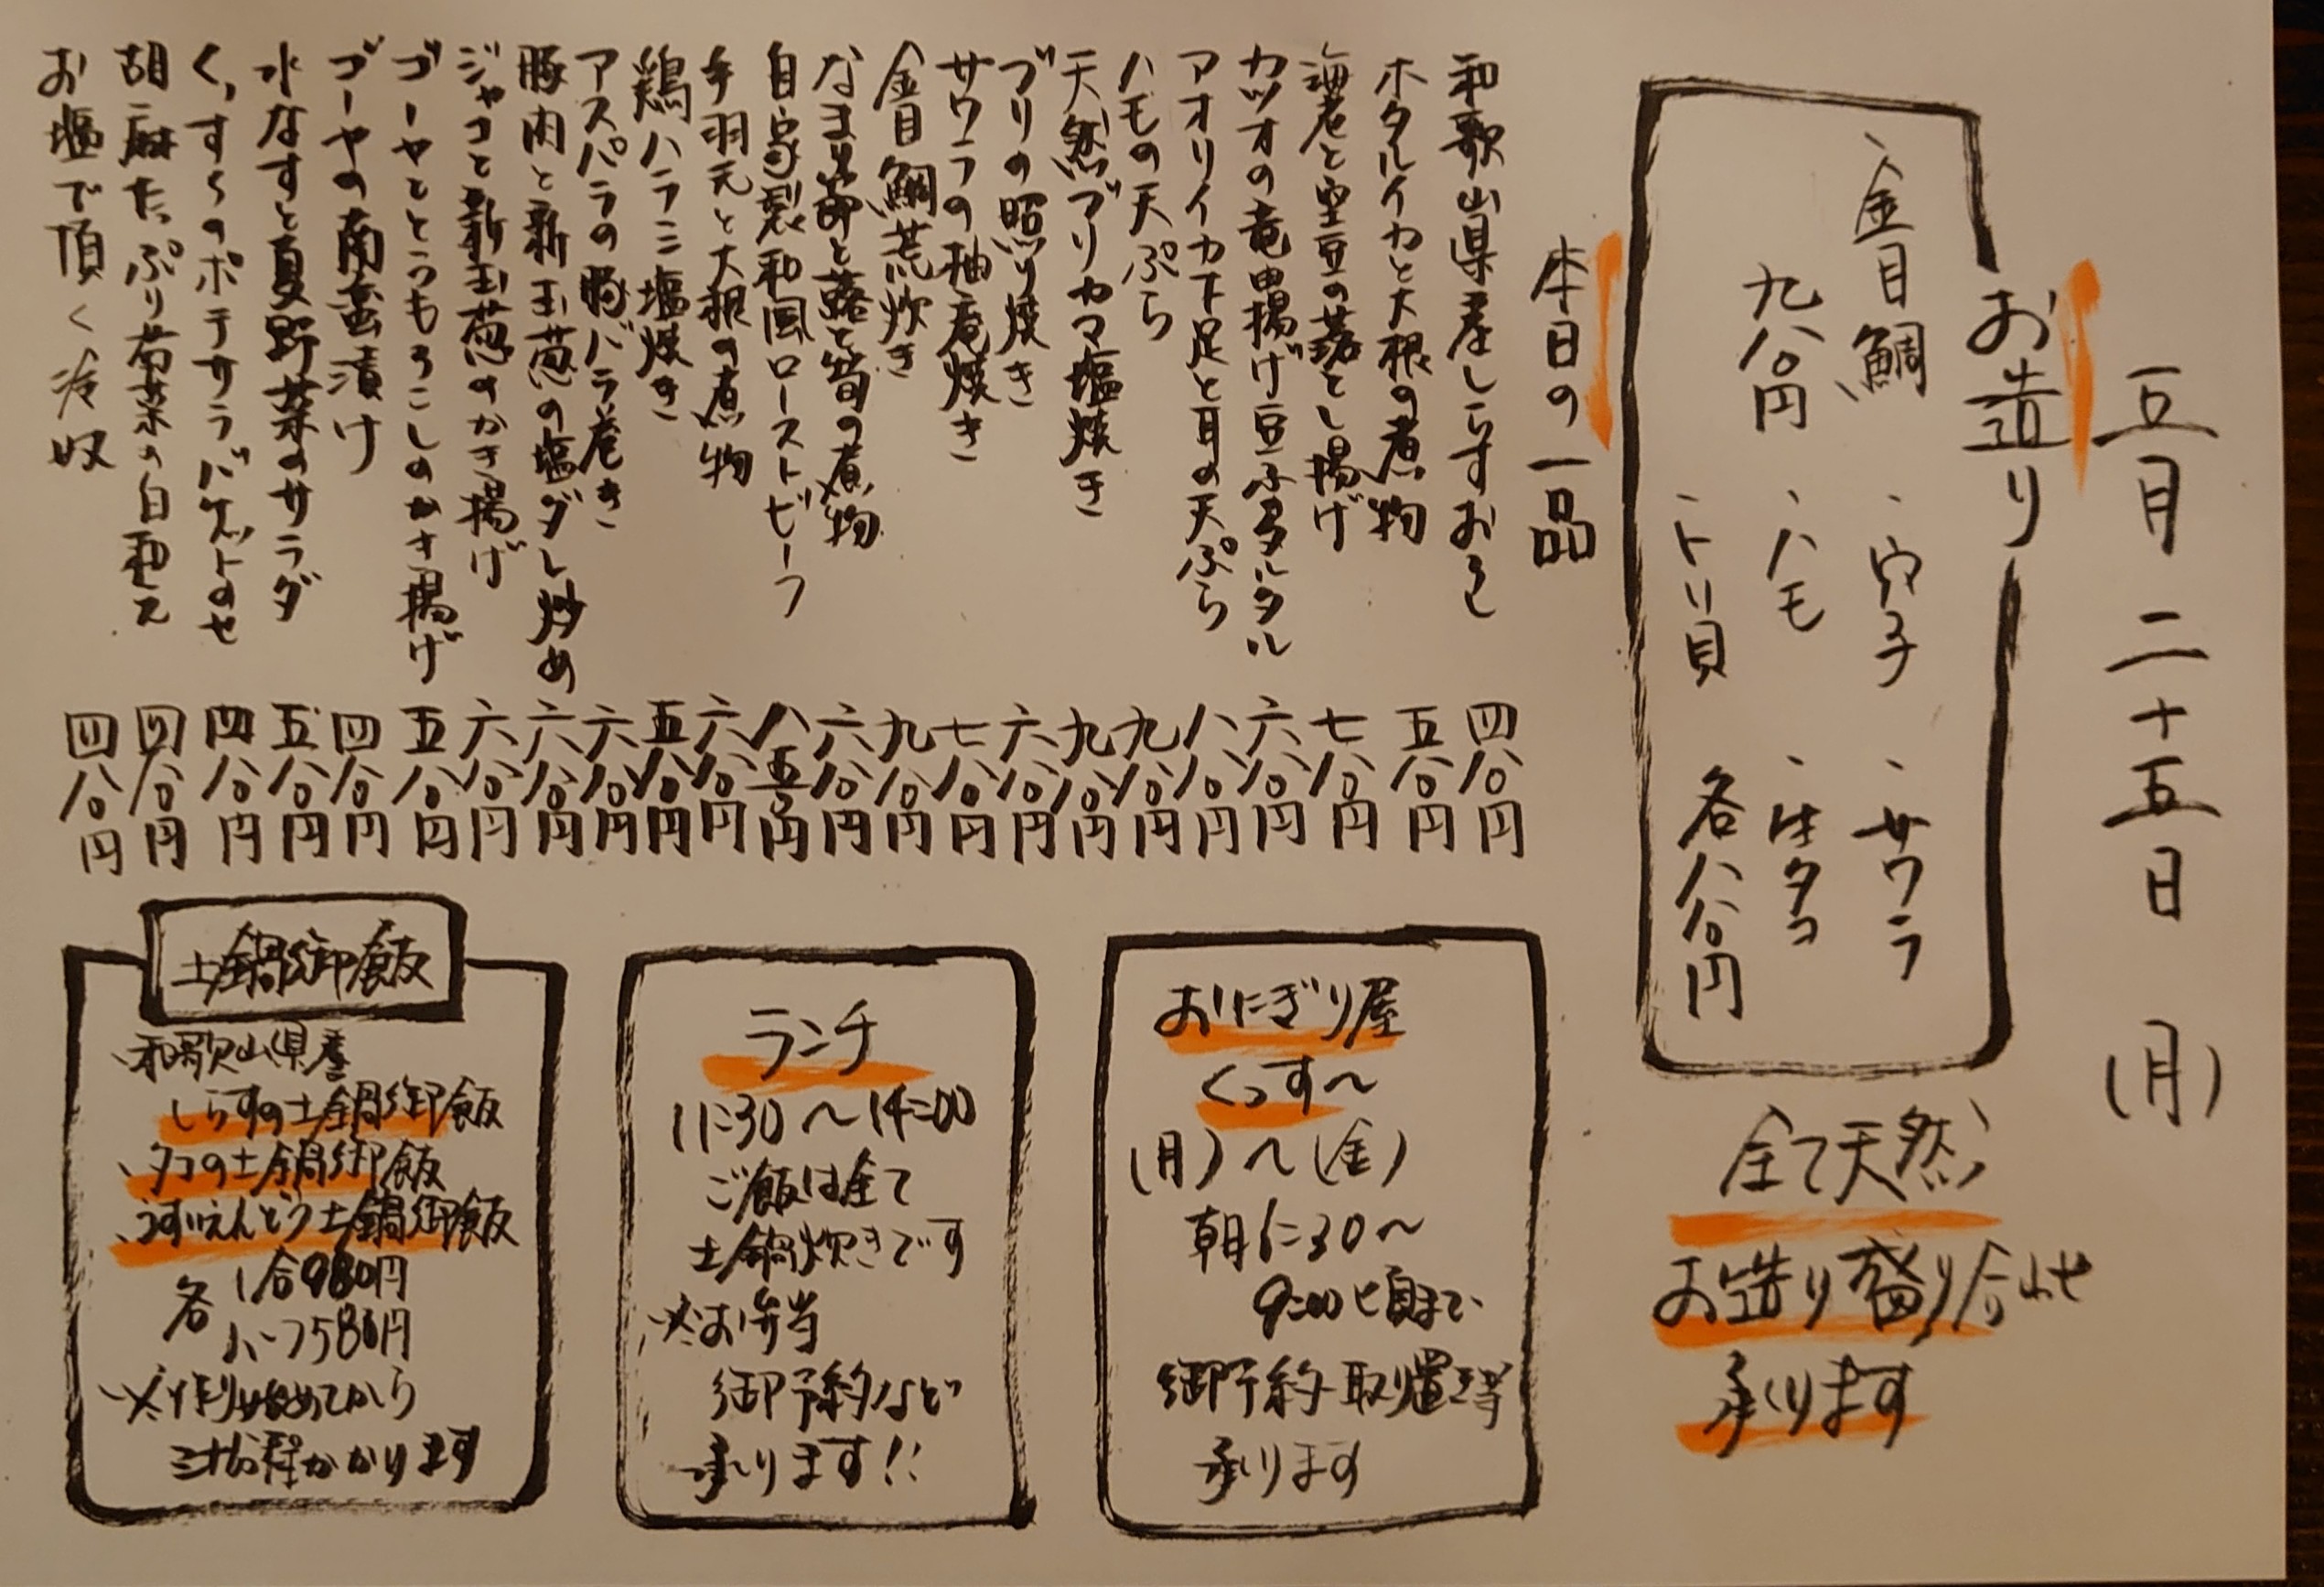 五月二十五日(月)
お造り
、金目鯛
九八〇円
、穴子
、サワラ
、ハモ
、生タコ
、トリ貝
各八八〇円
全て天然
お造り盛り合わせ
承ります
本日の一品
和歌山県産しらすおろし 四八〇円
ホタルイカと大根の煮物 五八〇円
海老と空豆の落とし揚げ 七八〇円
カツオの竜田揚げ豆ふタルタル 六八〇円
アオリイカ下足と耳の天ぷら 八八〇円
ハモの天ぷら 九八〇円
天然ブリカマ塩焼き 九八〇円
ブリの照り焼き 六八〇円
サワラの柚庵焼き 七八〇円
金目鯛荒炊き 九八〇円
なまり節と蕗と筍の煮物 六八〇円
自家製和風ローストビーフ 八五〇円
手羽元と大根の煮物 六八〇円
鶏ハラミ塩焼き 五八〇円
アスパラの豚バラ巻き 六八〇円
豚肉と新玉葱の塩ダレ炒め 六八〇円
ジャコと新玉葱のかき揚げ 六八〇円
ゴーヤととうもろこしのかき揚げ 五八〇円
ゴーヤの南蛮漬け 四八〇円
水なすと夏野菜のサラダ 五八〇円
くっすぅのポテサラバケットのせ 四八〇円
胡麻たっぷり菊菜の白和え 四八〇円
お塩で頂く冷奴 四八〇円
おにぎり屋
くっす〜
(月)〜(金)
朝6:30〜
9:00頃まで
御予約・取り置き等
承ります
ランチ
11:30〜14:00
ご飯は全て
土鍋炊きです
※お弁当
御予約など
承ります!!
土鍋御飯
、和歌山県産
しらすの土鍋御飯
、タコの土鍋御飯
、うすいえんどう土鍋御飯
各 1合980円
ハーフ580円
※作り始めてから
三十分程かかります